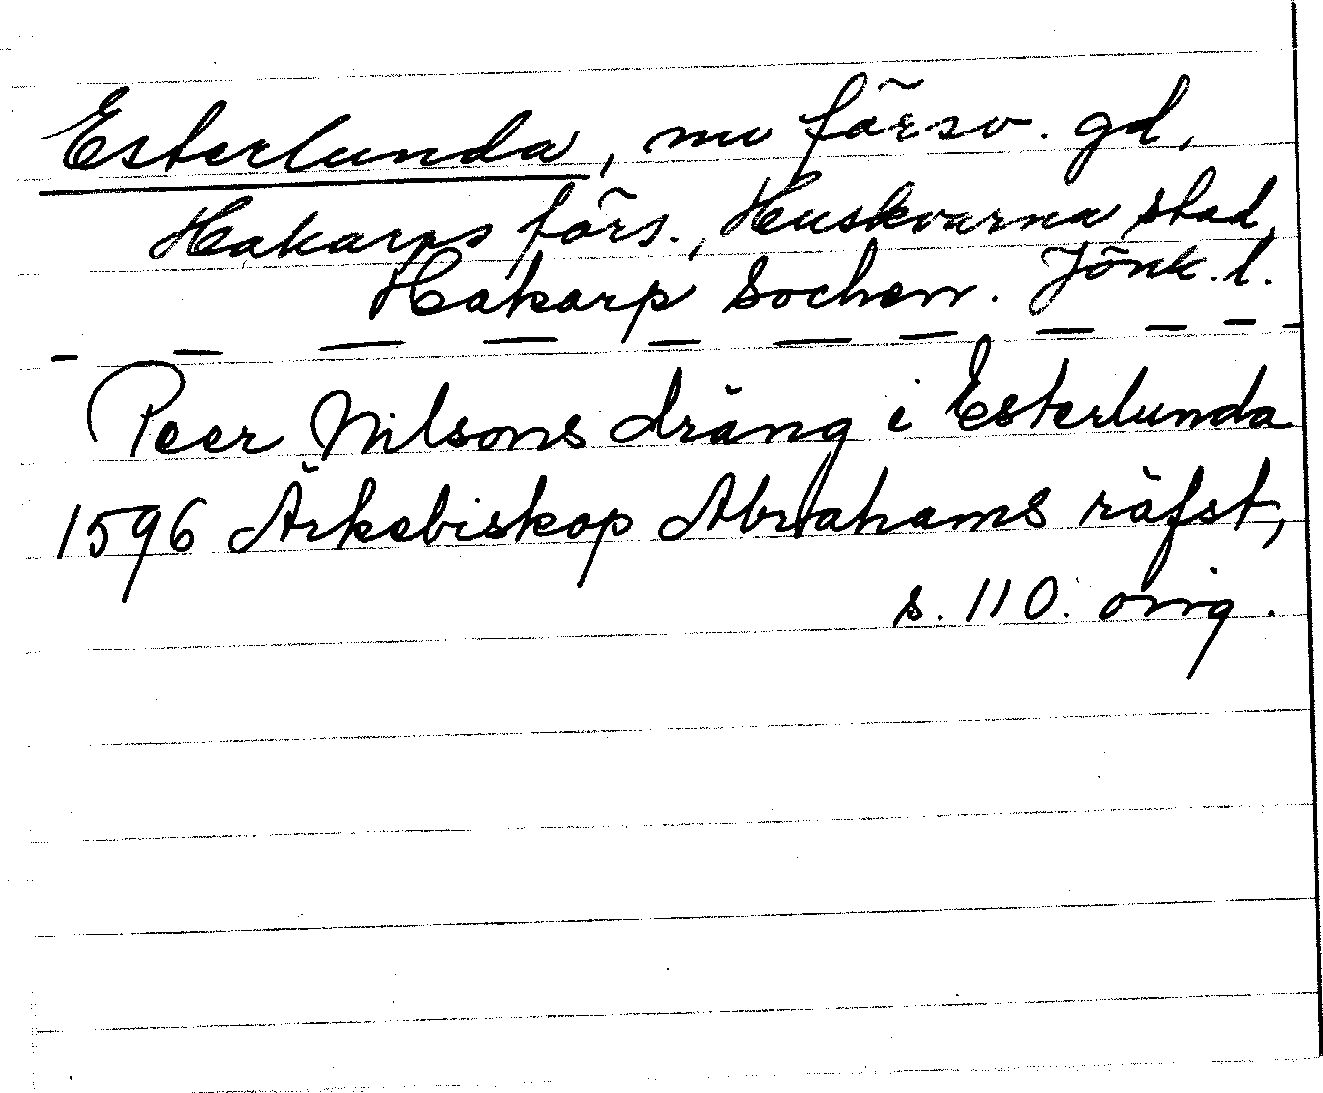 Esterlunda, nu försv. gd,
Hakarps förs., Huskvarna stad,
Hakarp Sochen. Jönk. l.
Peer Nilsons dräng i Esterlunda
1596 Ärkebiskop Abrahams räfst,
s. 110. orig.